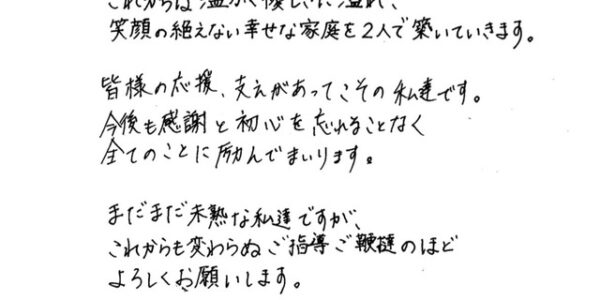 これからは温かく優しさに溢れ、
笑顔の絶えない幸せな家庭を2人で築いていきます。
皆様の応援、支えがあってこその私達です。
今後も感謝と初心を忘れることなく
全てのことに励んでまいります。
まだまだ未熟な私達ですが、
これからも変わらぬご指導ご鞭撻のほど
よろしくお願いします。